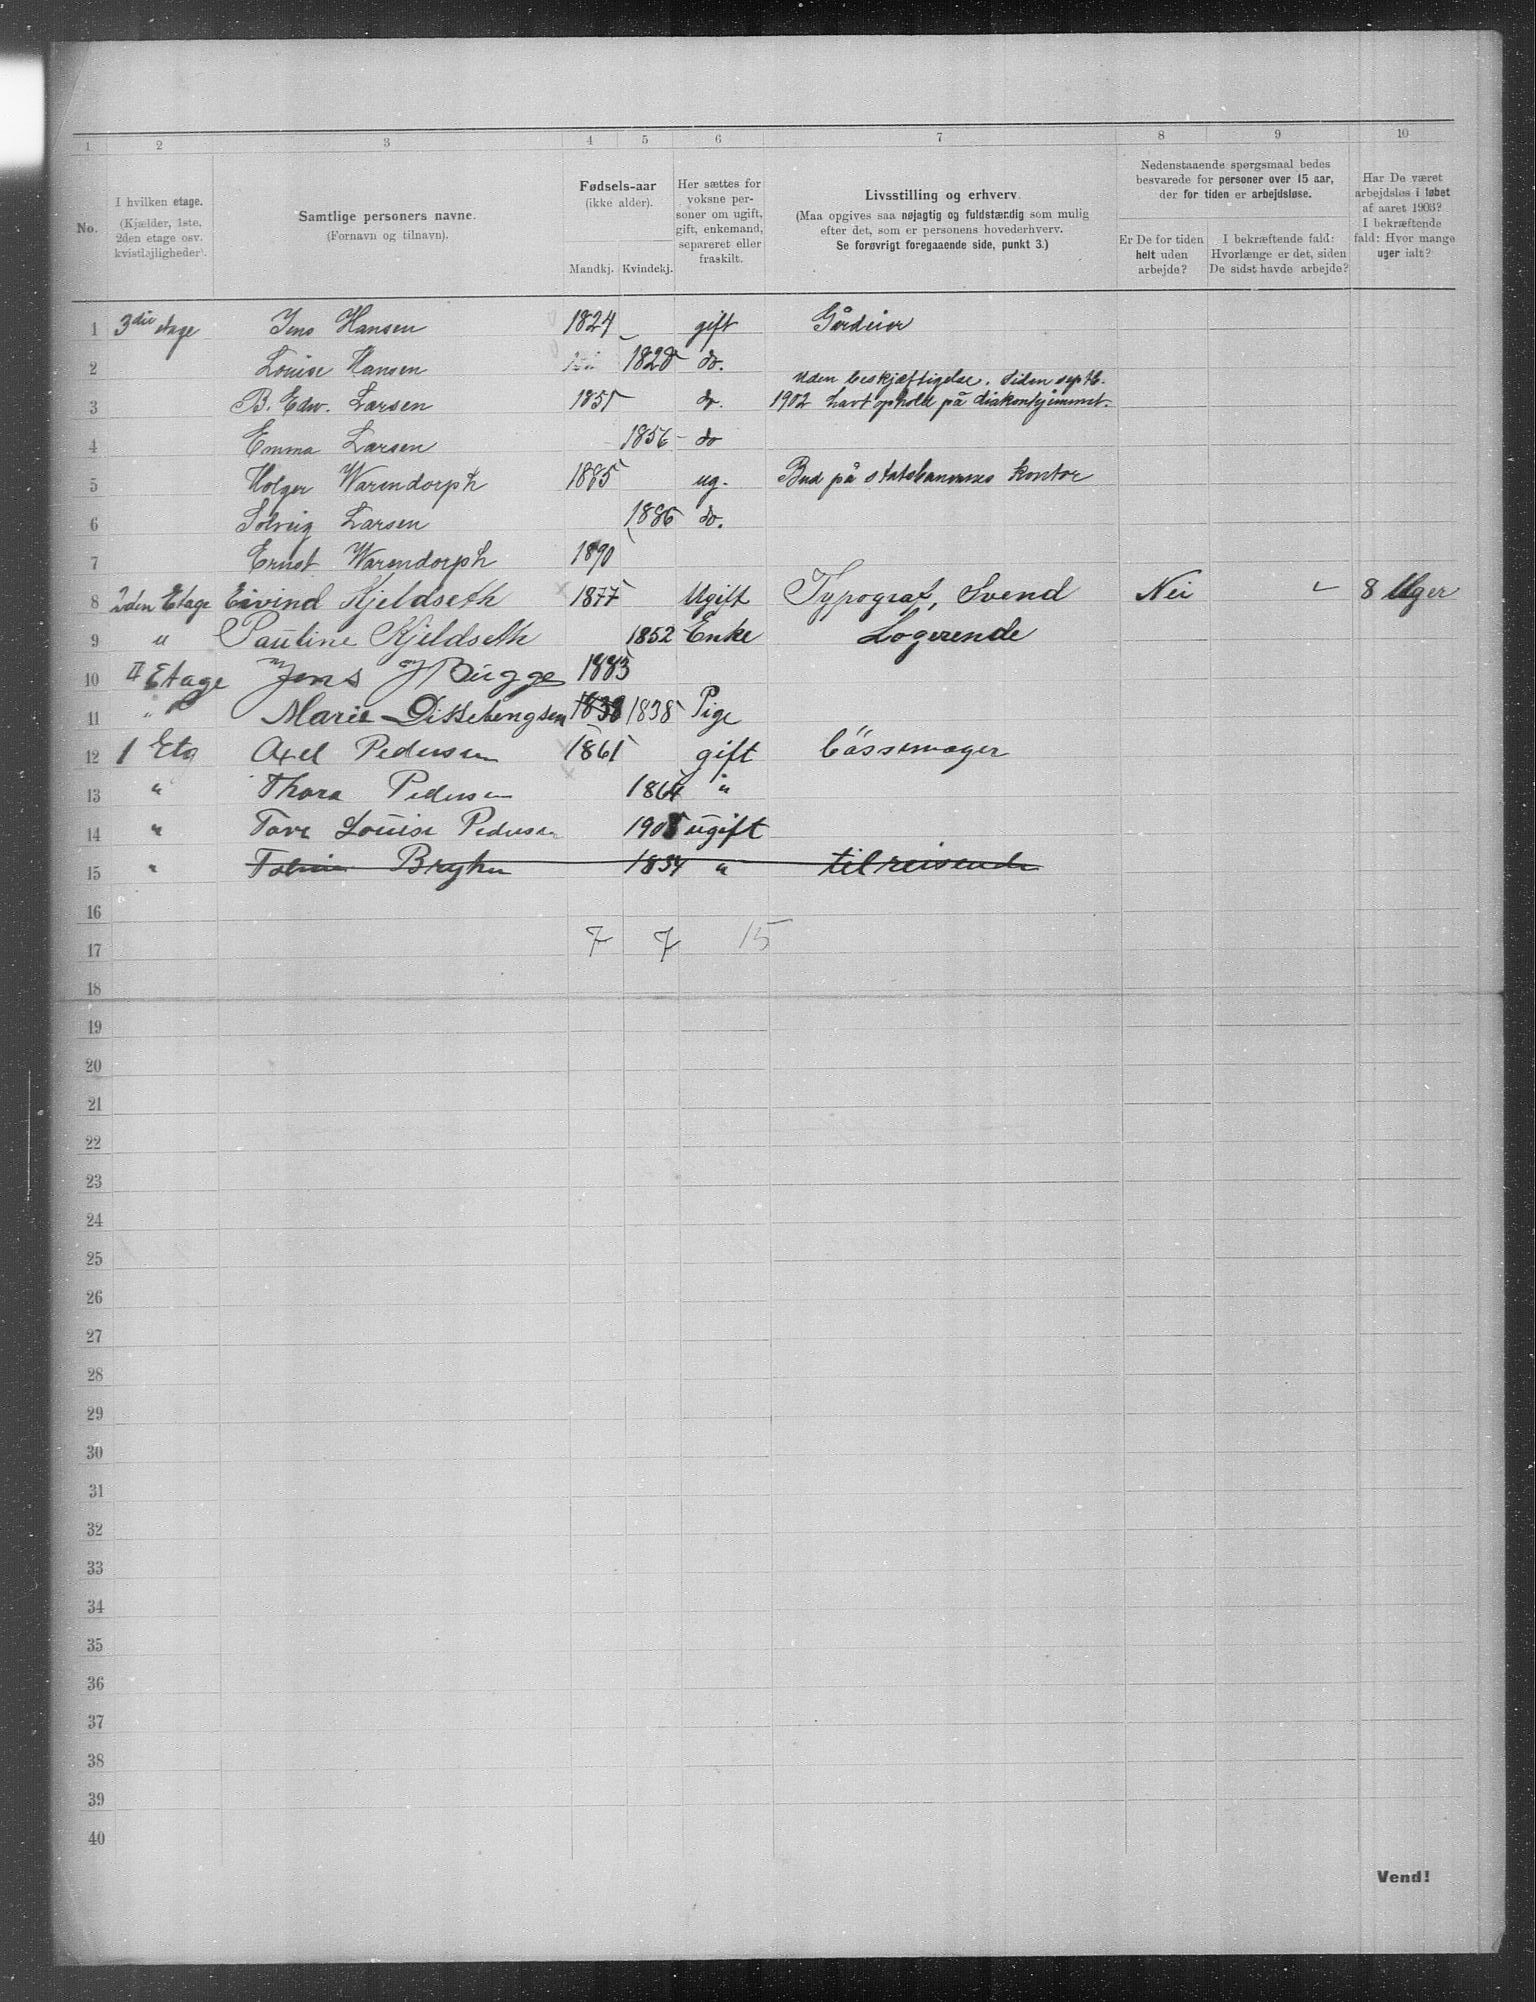 1 2 3 4 5 6 7 8 9 10
No.
I hvilken etage.
(Kjælder, 1ste,
2den etage osv.
kvistlejligheder).
Samtlige personers navne.
(Fornavn og tilnavn).
Fødsels-aar
(ikke alder).
Mandkj. Kvindekj.
Her sættes for
voksne per-
soner om ugift,
gift, enkemand,
separeret eller
fraskilt.
Livsstilling og erhverv.
(Maa opgives saa nøjagtig og fuldstændig som mulig
efter det, som er personens hovederhverv.
Se forøvrigt foregaaende side, punkt 3.)
Nedenstaaende spørgsmaal bedes
besvarede for personer over 15 aar,
der for tiden er arbejdsløse.
Er De for tiden
helt uden
arbejde?
I bekræftende fald:
Hvorlænge er det, siden
De sidst havde arbejde?
Har De været
arbejdsløs i løbet
af aaret 1903?
I bekræftende
fald: Hvor mange
uger ialt?
1 3die etage Jens Hansen 1824 gift Gårdeier
2 Louise Hansen 1828 do.
uden beskjæftigelse. Siden sept.
3 B. Edw. Larsen 1851 do. 1902 havt ophold på diakonhjemmet.
4 Emma Larsen 1856 do
5 Holger Warendorph 1885 ug. Bud på statsbanernes kontor
6 Solveig Larsen 1886 do.
7 Ernst Warendorph 1890
8 2den Etage Eivind Kjeldseth 1877 Ugift Typograf, Svend Nei 8 Uger
9 " Pauline Kjeldseth 1852 Enke Logerende
10 II Etage Jens Bugge 1883
11 " Marie 1838 1838 Pige
12 1 Etg Axel Pedersen 1861 gift
13 " Thora Pedersen 1864 "
14 " Tove Louise Pedersen ugift
15 " 1834 " tilreisende
16
17 7 7 15
18
19
20
21
22
23
24
25
26
27
28
29
30
31
32
33
34
35
36
37
38
39
40
Vend!